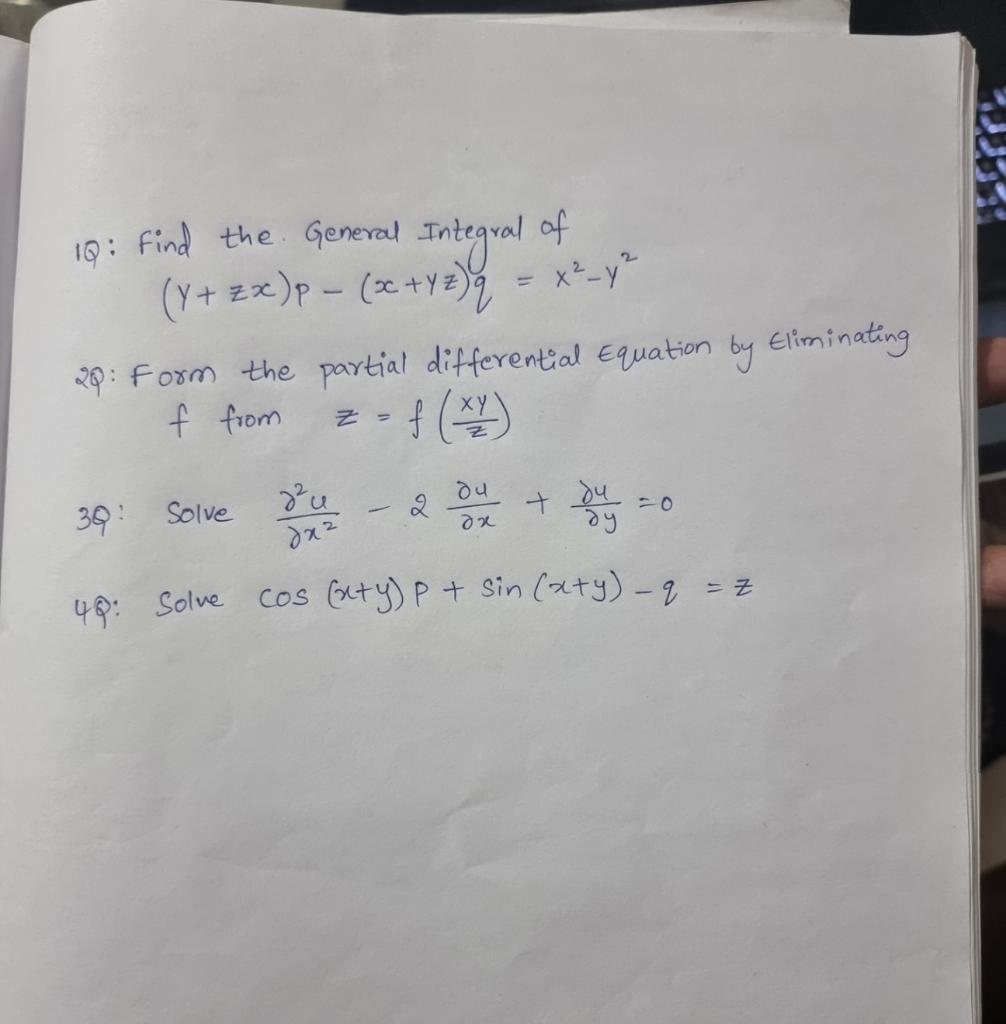 1Q: Find the General Integral of
(Y + zx)p - (x + Yz)q = x² - y²
2Q: Form the partial differential Equation by Eliminating
f from z = f(xy/z)
3Q: Solve ∂²u/∂x² - 2 ∂u/∂x + ∂u/∂y = 0
4Q: Solve cos (x+y) p + sin (x+y) - q = z